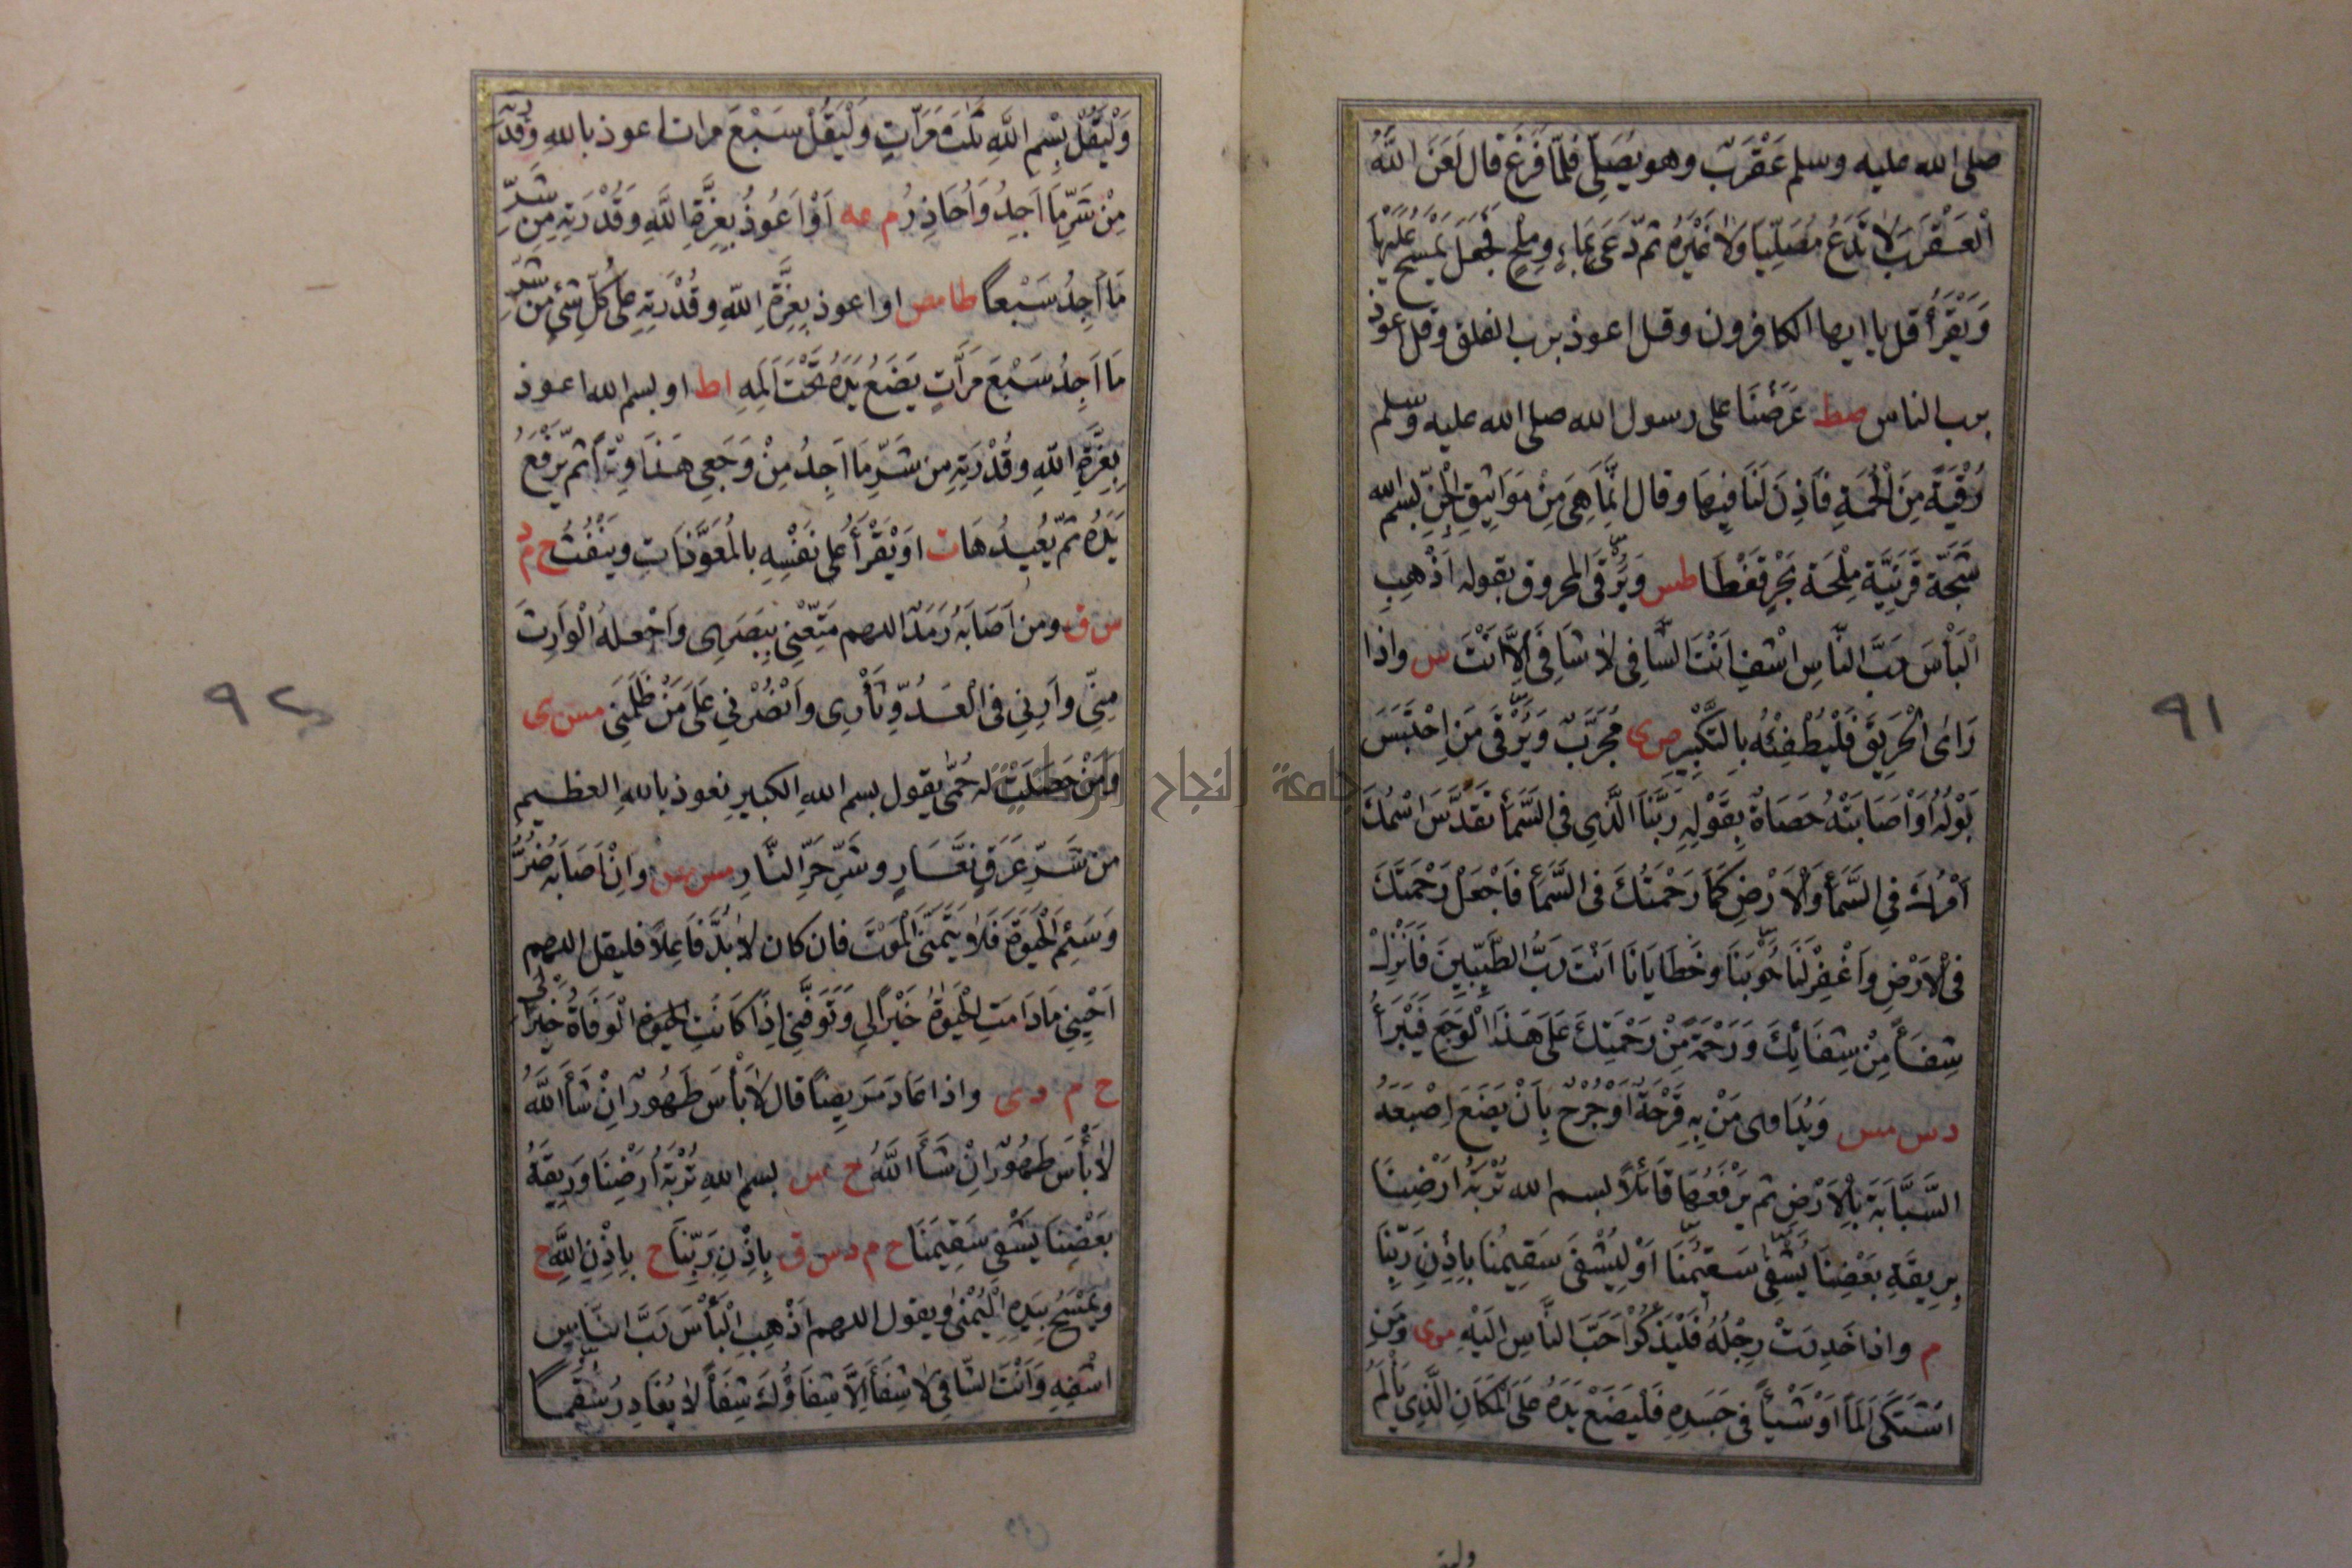 صلى الله عليه وسلم عَقْرَبٌ وهو يُصَلِّي فلمّا فَرَغَ قال لَعَنَ اللَّهُ
الْعَقْرَبَ لَا تَدَعُ مُصَلِّيًا وَلَا غَيْرَهُ ثم دَعَى بِمَاءٍ وَمِلْحٍ فَجَعَلَ يَمْسَحُ عَلَيْهَا
وَيَقْرَأُ قل يا ايها الكافرون وقل اعوذ برب الفلق وقل اعوذ
برب الناس صط عَرَضْنَا على رسول الله صلى الله عليه وسلم
رُقْيَةً مِنَ الْحُمَةِ فَاَذِنَ لَنَا فِيهَا وقال اِنَّمَا هِيَ مِنْ مَوَاثِيقِ الْجِنِّ بِسْمِ الله
شَجَّة قَرَنِيَّة مِلْحَة بَحْرٍ قَفْطَا طس وَيُرْقَى المحروق بقوله اَذْهِبِ
الْبَأْسَ رَبَّ النَّاسِ اشْفِ اَنْتَ الشَّافِي لَا شَافِيَ اِلَّا اَنْتَ س واذا
رَاَى الْحَرِيقَ فَلْيُطْفِئْهُ بِالتَّكْبِيرِ ص ى مُجَرَّبٌ وَيُرْقَى مَنِ احْتَبَسَ
بَوْلُهُ اَوْ اَصَابَتْهُ حَصَاةٌ بِقَوْلِهِ رَبَّنَا الَّذِي فِي السَّمَاء تَقَدَّسَ اسْمُكَ
اَمْرُكَ فِي السَّمَاءِ وَالْاَرْضِ كَمَا رَحْمَتُكَ فِي السَّمَاءِ فَاجْعَلْ رَحْمَتَكَ
فِي الْاَرْضِ وَاغْفِرْ لَنَا حُوبَنَا وخَطَايَانَا اَنْتَ رَبُّ الطَّيِّبِينَ فَاَنْزِلْ
شِفَاءً مِنْ شِفَائِكَ وَرَحْمَةً مِّنْ رَحْمَتِكَ عَلَى هَذَا الْوَجَعِ فَيَبْرَأُ
د س مس وَيُدَاوَى مَنْ بِهِ قَرْحَةٌ اَوْ جُرْحٌ بِاَنْ يَضَعَ اِصْبَعَهُ
السَّبَّابَةَ بِالْاَرْضِ ثم يَرْفَعُهَا قَائِلًا بسم الله تُرْبَةُ اَرْضِنَا
بِرِيقَةِ بَعْضِنَا يُشْفَى سَقِيمُنَا اَوْ لِيُشْفَى سَقِيمُنَا بِاِذْنِ رَبِّنَا
م واذا خَدِرَتْ رِجْلُهُ فَلْيَذْكُرْ اَحَبَّ النَّاسِ اِلَيْهِ مو ى وَمَنِ
اشْتَكَى اَلَمًا اَوْ شَيْأً فِي جَسَدِهِ فَلْيَضَعْ يَدَهُ عَلَى الْمَكَانِ الَّذِي يَأْلَمُ
٩١
وَلْيَقُلْ بِسْمِ اللَّهِ ثَلٰثَ مَرَّاتٍ وَلْيَقُلْ سَبْعَ مرات اعوذ بالله وَقُدْرَتِهِ
مِنْ شَرِّ مَا اَجِدُ وَاُحَاذِرُ م عه اَوْ اَعُوذُ بِعِزَّةِ اللَّهِ وَقُدْرَتِهِ مِنْ شَرِّ
مَا اَجِدُ سَبْعًا طا مص او اعوذ بِعِزَّةِ اللهِ وقُدْرَتِهِ عَلَى كُلِّ شَيْءٍ مِنْ شَرِّ
مَا اَجِدُ سَبْعَ مَرَّاتٍ يَضَعُ يَدَهُ تَحْتَ اَلَمِهِ اط او بسم الله اعوذ
بِعِزَّةِ اللهِ وقُدْرَتِهِ مِن شَرِّ مَا اَجِدُ مِنْ وَجَعِي هَذَا وِتْرًا ثم يَرْفَعُ
يَدَهُ ثم يُعِيدُهَا ت او يَقْرَأُ عَلى نَفْسِهِ بالْمُعَوَّذَاتِ وينْفُثُ خ م د
س ق ومن اَصَابَهُ رَمَدٌ اللهم مَتِّعْنِي بِبَصَرِي واجْعَلْهُ الْوَارِثَ
مِنِّي واَرِنِي فِي الْعَدُوِّ ثَأْرِي وانْصُرْنِي عَلَى مَنْ ظَلَمَنِي مس ى
ومَنْ حَصَلَتْ له حُمَّى يقول بسم اللهِ الكبيرِ نعوذ بالله العظيم
من شَرِّ عِرْقٍ نَعَّارٍ وشَرِّ حَرِّ النَّارِ مس مص وَاِنْ اَصَابَه ضُرٌّ
وَسَئِمَ الْحَيٰوةَ فَلَا يَتَمَنَّى الْمَوْتَ فان كان لَا بُدَّ فَاعِلًا فليقل اللهم
اَحْيِنِي مَا دَامَتِ الْحَيٰوةُ خَيْرًا لِي وَتَوَفَّنِي اِذَا كَانَتِ الْوَفَاةُ خَيْرًا لِي
خ م د ى واذا عَادَ مَرِيضًا قال لَا بَأْسَ طَهُورٌ اِنْ شَاءَ اللَّهُ
لَا بَأْسَ طَهُورٌ اِنْ شَاءَ اللَّهُ خ س بسم اللهِ تُرْبَةُ اَرْضِنَا وَرِيقَةُ
بَعْضِنَا يُشْفَى سَقِيمُنَا خ م د س ق بِاِذْنِ رَبِّنَا خ بِاِذْنِ اللَّهِ خ
ويَمْسَحُ بِيَدِهِ الْيُمْنَى ويقول اللهم اَذْهِبِ الْبَأْسَ رَبَّ النَّاسِ
اشْفِهِ وَاَنْتَ الشَّافِي لَا شِفَاءَ اِلَّا شِفَاؤُكَ شِفَاءً لَا يُغَادِرُ سُقْمًا
٩٢
جامعة النجاح الوطنية